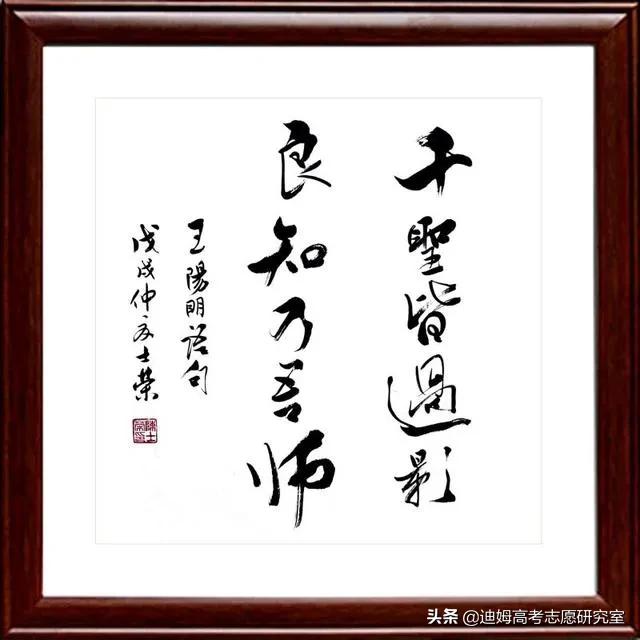 千聖皆過影
良知乃吾師
王陽明語句
戊戌仲夏士榮
頭条 @迪姆高考志愿研究室